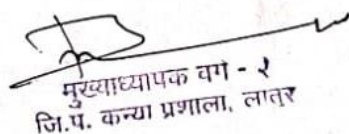 मुख्याध्यापक वर्ग - १
जि.प. कन्या प्रशाला, लातूर